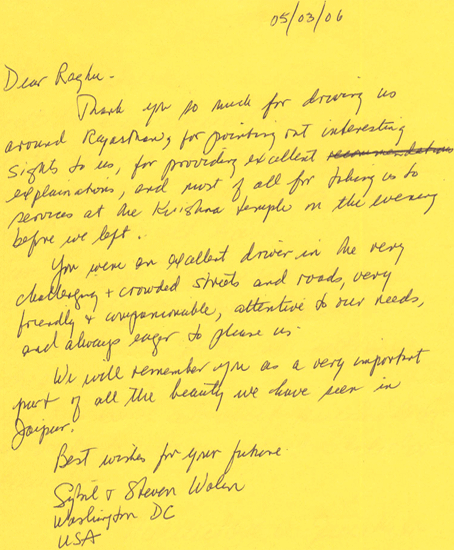 05/03/06
Dear Raghu -
Thank you so much for driving us
around Rajasthan, for pointing out interesting
sights to us, for providing excellent recommendations
explainations, and most of all for taking us to
services at the Krishna temple on the evening
before we left.
You were an excellent driver in the very
challenging + crowded streets and roads, very
friendly + companionable, attentive to our needs,
and always eager to please us.
We will remember you as a very important
part of all the beauty we have seen in
Jaipur.
Best wishes for your future
Sybil + Steven Wolin
Washington DC
USA